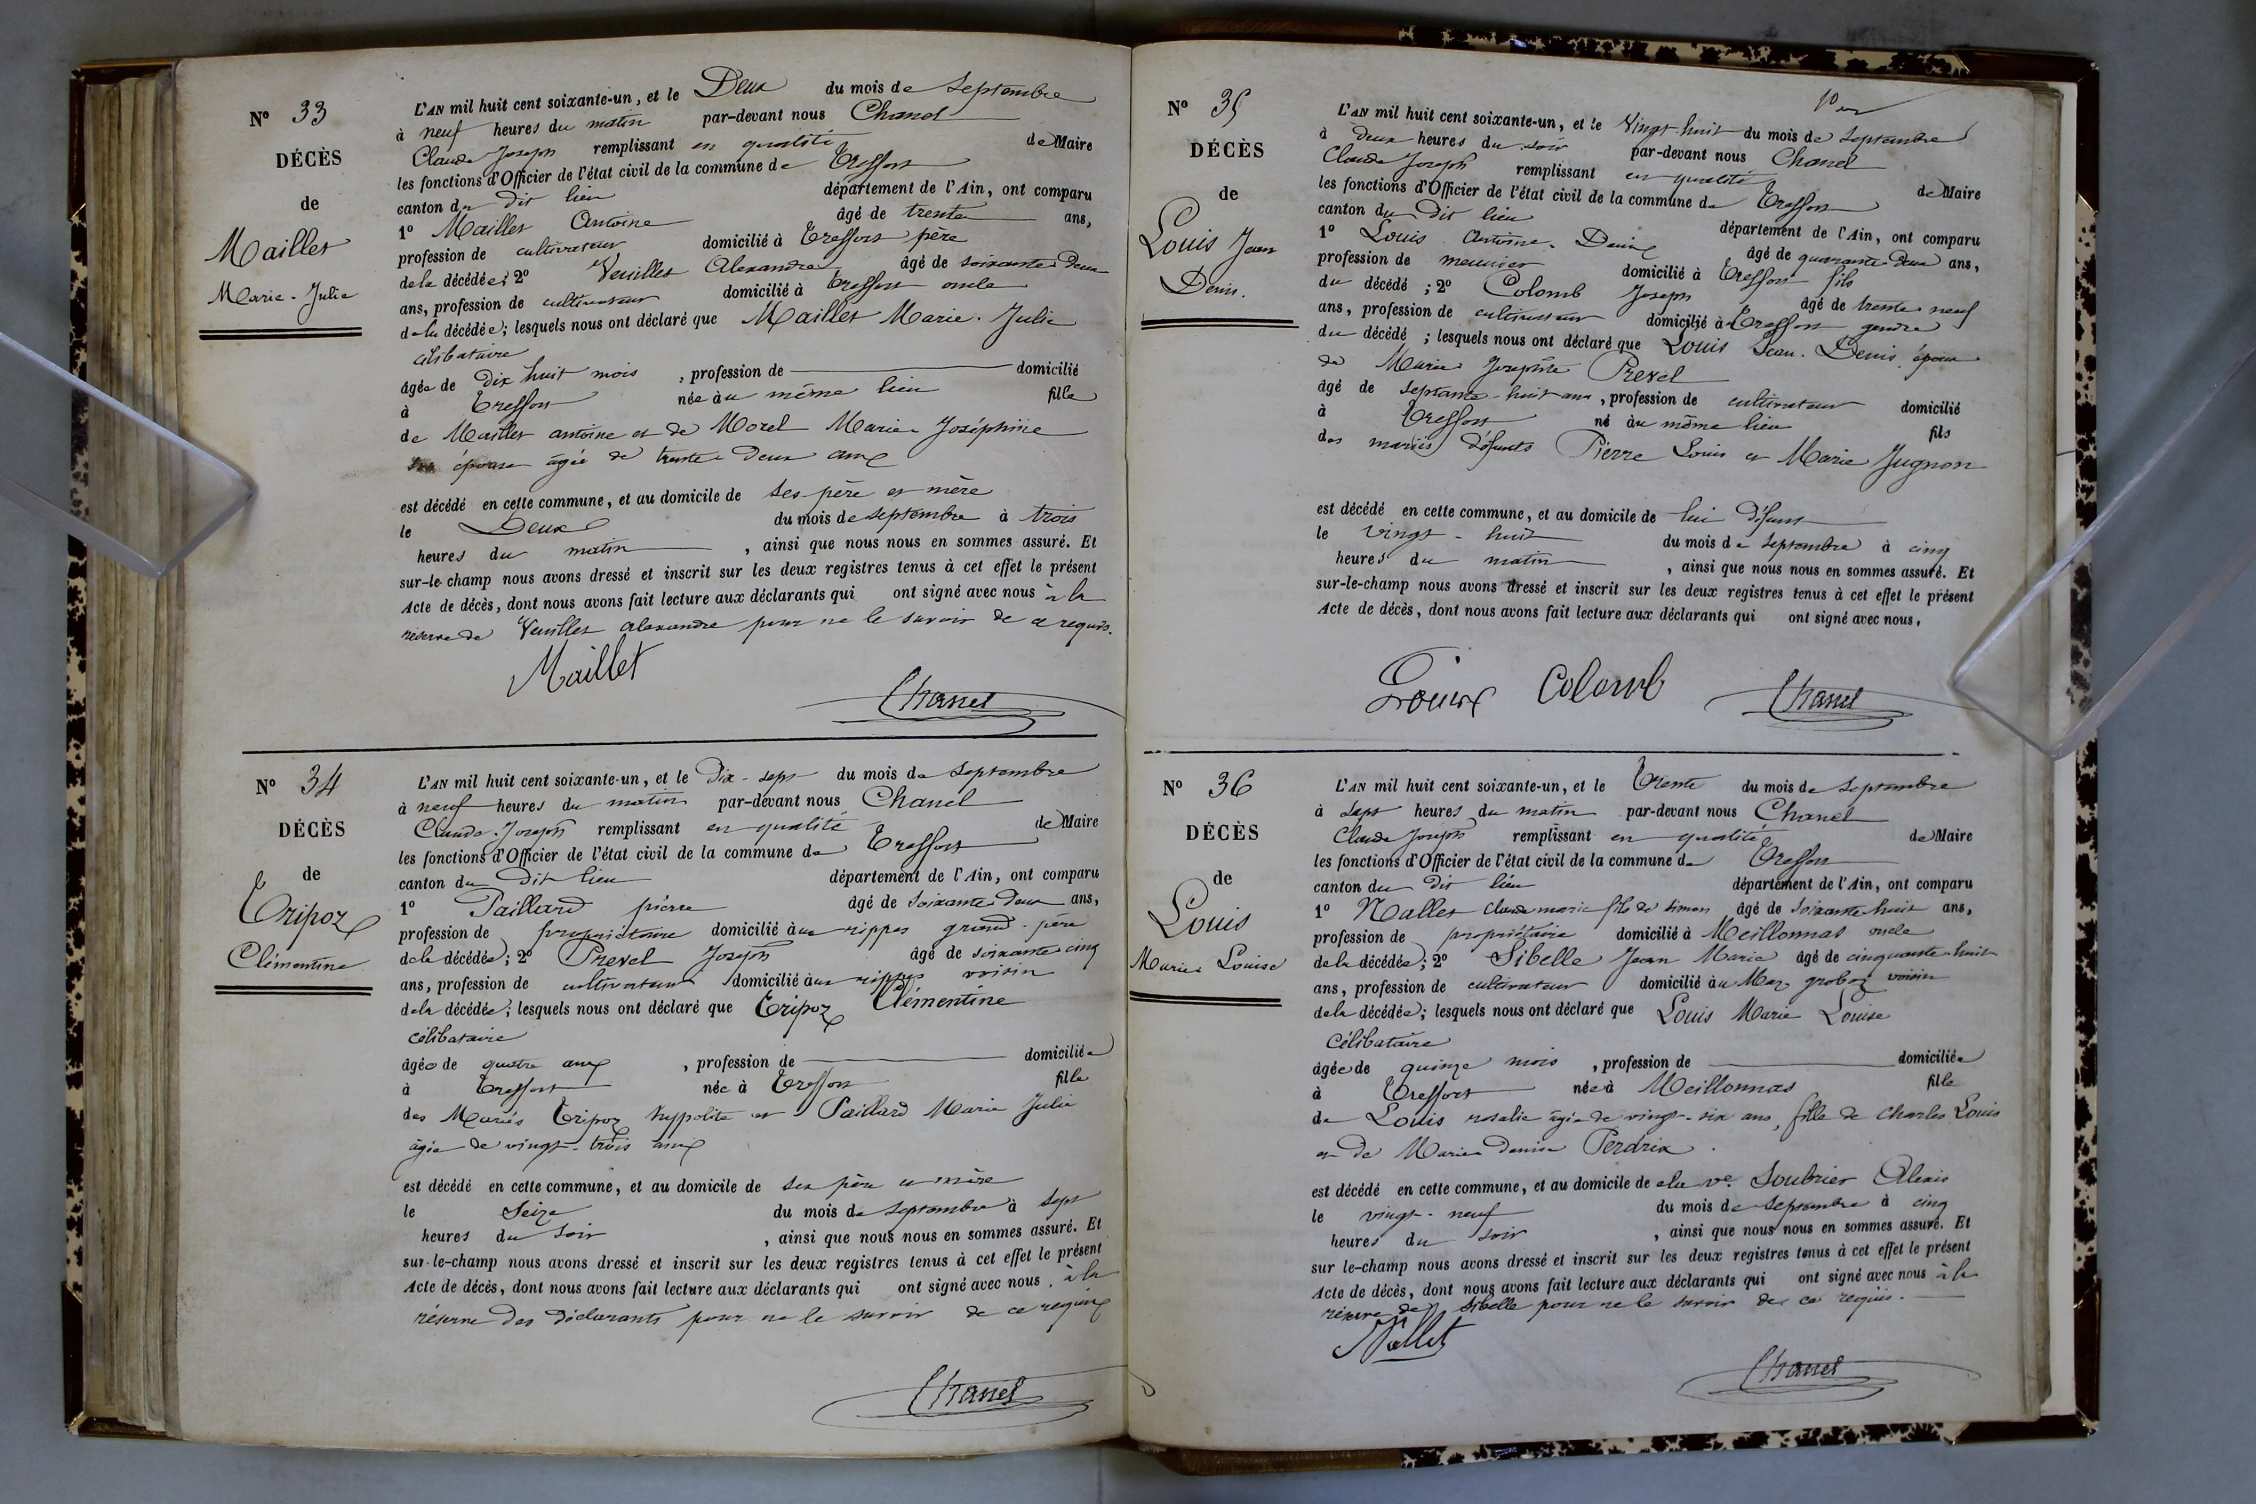 N° 33
DÉCÈS
de
Maillet
Marie-Julie
L'AN mil huit cent soixante-un, et le Deux du mois de Septembre
à neuf heures du matin par-devant nous Chanel
Claude Joseph remplissant en qualité de Maire
les fonctions d'Officier de l'état civil de la commune de Treffort
canton du dit lieu département de l'Ain, ont comparu
1° Maillet Antoine âgé de trente ans,
profession de cultivateur domicilié à Treffort père
de la décédée; 2° Veuillet Alexandre âgé de soixante deux
ans, profession de cultivateur domicilié à Treffort oncle
de la décédée; lesquels nous ont déclaré que Maillet Marie-Julie
célibataire
âgée de dix huit mois , profession de domicilié
à Treffort née au même lieu fille
de Maillet antoine et de Morel Marie Joséphine
son épouse âgée de trente deux ans
est décédé en cette commune, et au domicile de ses père et mère
le Deux du mois de septembre à trois
heures du matin , ainsi que nous nous en sommes assuré. Et
sur-le-champ nous avons dressé et inscrit sur les deux registres tenus à cet effet le présent
Acte de décès, dont nous avons fait lecture aux déclarants qui ont signé avec nous à la
réserve de Veuillet alexandre pour ne le savoir de ce requis.
Maillet
Chanel
N° 34
DÉCÈS
de
Tripoz
Clémentine
L'AN mil huit cent soixante-un, et le Dix-sept du mois de Septembre
à neuf heures du matin par-devant nous Chanel
Claude-Joseph remplissant en qualité de Maire
les fonctions d'Officier de l'état civil de la commune de Treffort
canton du dit lieu département de l'Ain, ont comparu
1° Paillard pierre âgé de soixante deux ans,
profession de propriétaire domicilié aux rippes grand-père
de la décédée; 2° Prevel Joseph âgé de soixante cinq
ans, profession de cultivateur domicilié aux rippes voisin
de la décédée; lesquels nous ont déclaré que Tripoz Clémentine
célibataire
âgée de quatre ans , profession de domiciliée
à Treffort née à Treffort fille
des Mariés Tripoz hyppolite et Paillard Marie Julie
âgée de vingt-trois ans
est décédé en cette commune, et au domicile de ses père et mère
le Seize du mois de Septembre à sept
heures du soir , ainsi que nous nous en sommes assuré. Et
sur-le-champ nous avons dressé et inscrit sur les deux registres tenus à cet effet le présent
Acte de décès, dont nous avons fait lecture aux déclarants qui ont signé avec nous, à la
réserve des déclarants pour ne le savoir de ce requis
Chanel
N° 35
DÉCÈS
de
Louis Jean
Denis.
L'AN mil huit cent soixante-un, et le Vingt-huit du mois de Septembre
à deux heures du soir par-devant nous Chanel
Claude Joseph remplissant en qualité de Maire
les fonctions d'Officier de l'état civil de la commune de Treffort
canton du dit lieu département de l'Ain, ont comparu
1° Louis Antoine-Denis âgé de quarante deux ans,
profession de meunier domicilié à Treffort fils
du décédé ; 2° Colomb Joseph âgé de trente neuf
ans, profession de cultivateur domicilié à Treffort gendre
du décédé ; lesquels nous ont déclaré que Louis Jean-Denis époux
de Marie Josephte Prevel
âgé de septante-huit ans , profession de cultivateur domicilié
à Treffort né au même lieu fils
des mariés défunts Pierre Louis et Marie Jugnon
est décédé en cette commune, et au domicile de lui défunt
le vingt-huit du mois de septembre à cinq
heures du matin , ainsi que nous nous en sommes assuré. Et
sur-le-champ nous avons dressé et inscrit sur les deux registres tenus à cet effet le présent
Acte de décès, dont nous avons fait lecture aux déclarants qui ont signé avec nous,
Louis Colomb Chanel
N° 36
DÉCÈS
de
Louis
Marie Louise
L'AN mil huit cent soixante-un, et le Trente du mois de Septembre
à sept heures du matin par-devant nous Chanel
Claude Joseph remplissant en qualité de Maire
les fonctions d'Officier de l'état civil de la commune de Treffort
canton du dit lieu département de l'Ain, ont comparu
1° Nallet claude marie fils de simon âgé de soixante huit ans,
profession de propriétaire domicilié à Meillonnas oncle
de la décédée; 2° Sibelle Jean Marie âgé de cinquante-huit
ans, profession de cultivateur domicilié au Maz groboz voisin
de la décédée; lesquels nous ont déclaré que Louis Marie Louise
Célibataire
âgée de quinze mois , profession de domiciliée
à Treffort née à Meillonnas fille
de Louis rosalie âgée de vingt-six ans, fille de Charles Louis
et de Marie denise Perdrix.
est décédé en cette commune, et au domicile de la ve. Soubrier Alexis
le vingt-neuf du mois de septembre à cinq
heures du soir , ainsi que nous nous en sommes assuré. Et
sur le-champ nous avons dressé et inscrit sur les deux registres tenus à cet effet le présent
Acte de décès, dont nous avons fait lecture aux déclarants qui ont signé avec nous à la
réserve de Sibelle pour ne le savoir de ce requis.
Nallet
Chanel